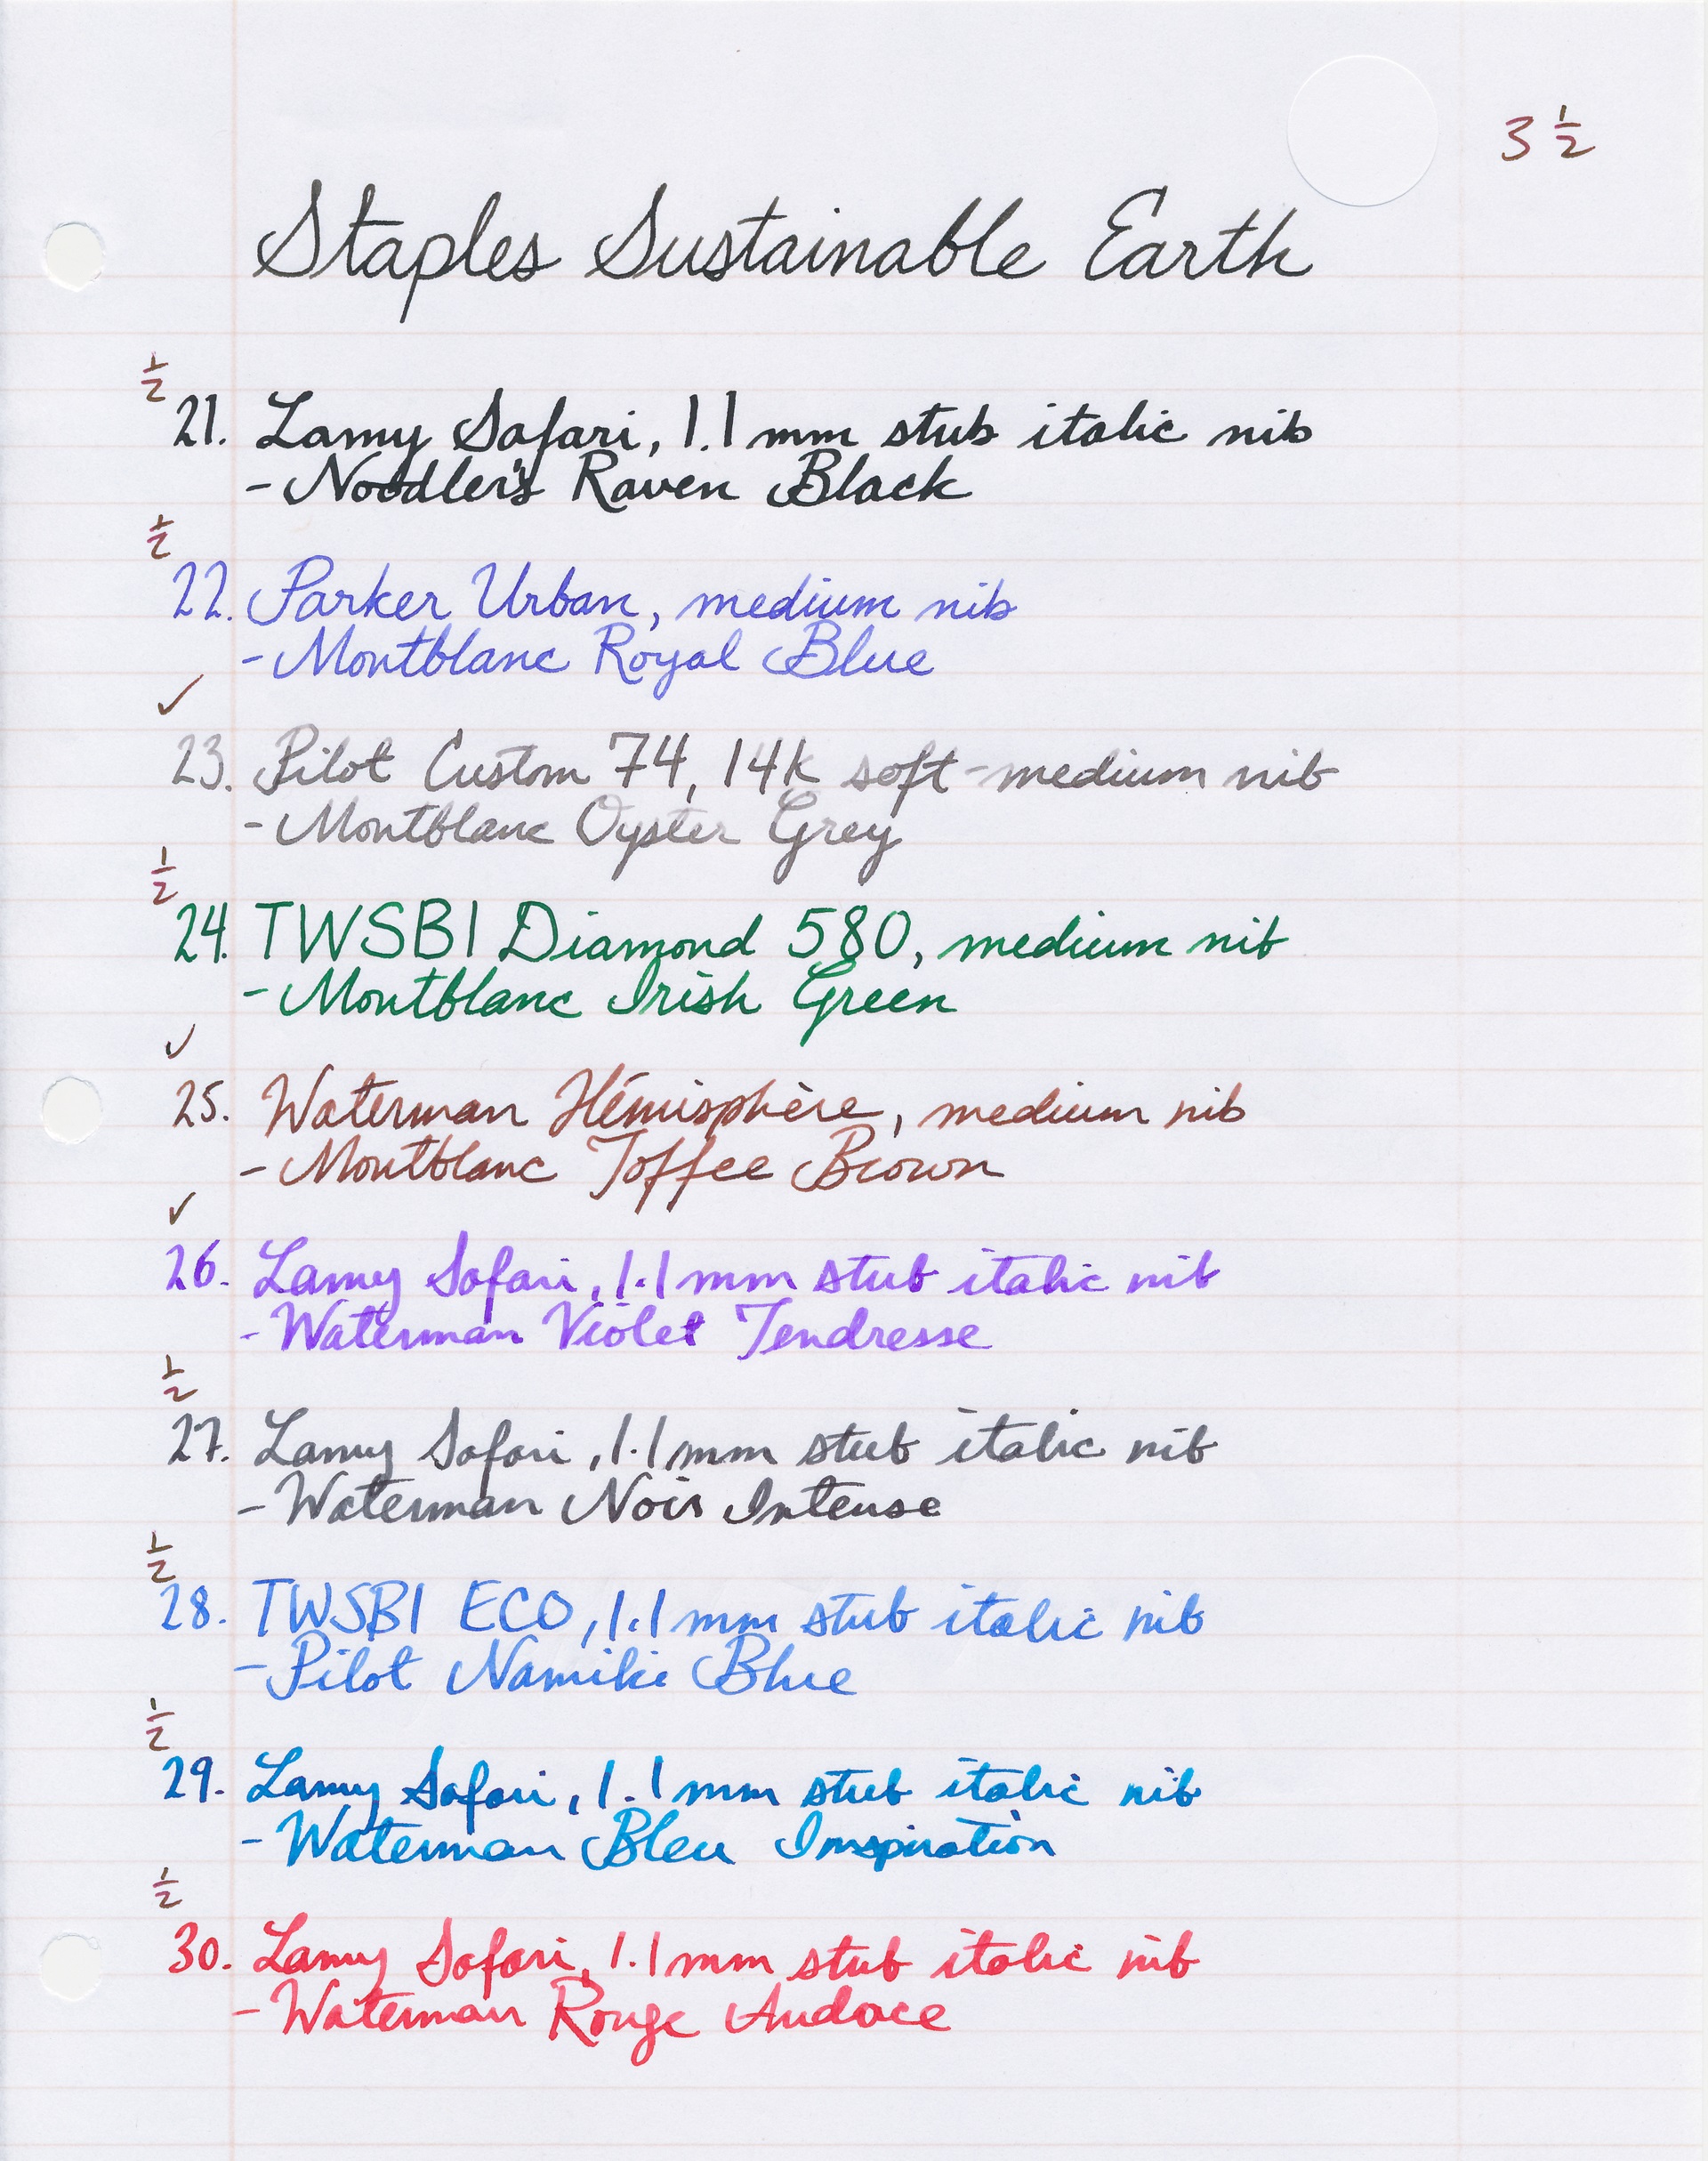 3 ½
Staples Sustainable Earth
½
21. Lamy Safari, 1.1 mm stub italic nib
- Noodler's Raven Black
½
22. Parker Urban, medium nib
- Montblanc Royal Blue
✓
23. Pilot Custom 74, 14k soft-medium nib
- Montblanc Oyster Grey
½
24. TWSBI Diamond 580, medium nib
- Montblanc Irish Green
✓
25. Waterman Hémisphère, medium nib
- Montblanc Toffee Brown
✓
26. Lamy Safari, 1.1 mm stub italic nib
- Waterman Violet Tendresse
½
27. Lamy Safari, 1.1 mm stub italic nib
- Waterman Noir Intense
½
28. TWSBI ECO, 1.1 mm stub italic nib
- Pilot Namiki Blue
½
29. Lamy Safari, 1.1 mm stub italic nib
- Waterman Bleu Inspiration
½
30. Lamy Safari, 1.1 mm stub italic nib
- Waterman Rouge Audace